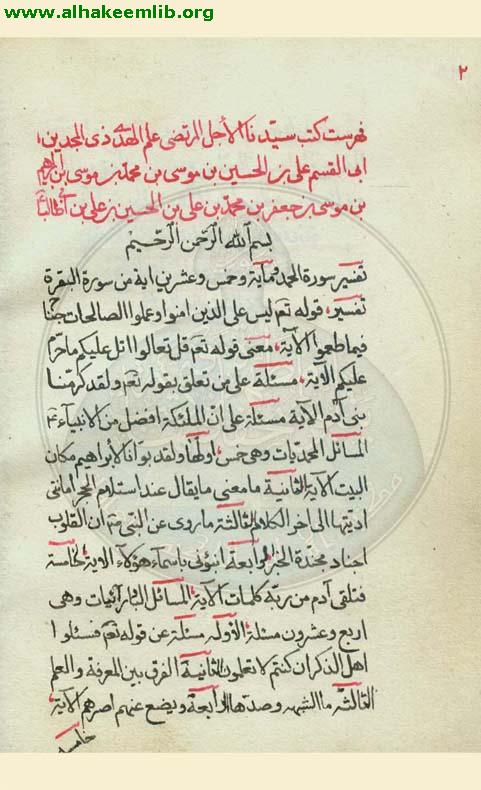 www.alhakeemlib.org
٢
فهرست كتب سيّدنا الأجل المرتضى علم الهدى ذى المجدين
ابى القسم على بن الحسين بن موسى بن محمد بن موسى بن ابراهيم
بن موسى بن جعفر بن محمد بن على بن الحسين بن على بن أبى طالب
بسم الله الرحمن الرحيم
تفسير سورة الحمد ومأية وخمس وعشرين اية من سورة البقرة
تفسير قوله تع ليس على الذين امنوا وعملوا الصالحات جناح
فيما طعموا الآية معنى قوله تع قل تعالوا اتل عليكم ما حرّم
عليكم الآية مسئلة على من تعلق بقوله تع ولقد كرمنا
بنى آدم الآية مسئلة على انّ الملئكة افضل من الانبيآء ع
المسائل المحمديات وهى خمس اولها ولقد بوّانا لابراهيم مكان
البيت الآية الثانية ما معنى ما يقال عند استلام الحجر امانتى
اديتها الى اخر الكلام الثالثة ما روى عن النبى ص ان القلوب
اجناد مجندة الخبر الرابعة انبؤنى باسمآء هؤلاء الاية الخامسة
فتلقى آدم من ربّه كلمات الآية المسائل البارآئيات وهى
اربع وعشرون مسئلة الاولى مسئلة عن قوله تع فسئلوا
اهل الذكر ان كنتم لا تعلمون الثانية الفرق بين المعرفة والعلم
الثالثة ما الشبهه وضدها الرابعة ويضع عنهم اصرهم الآية
خامسة